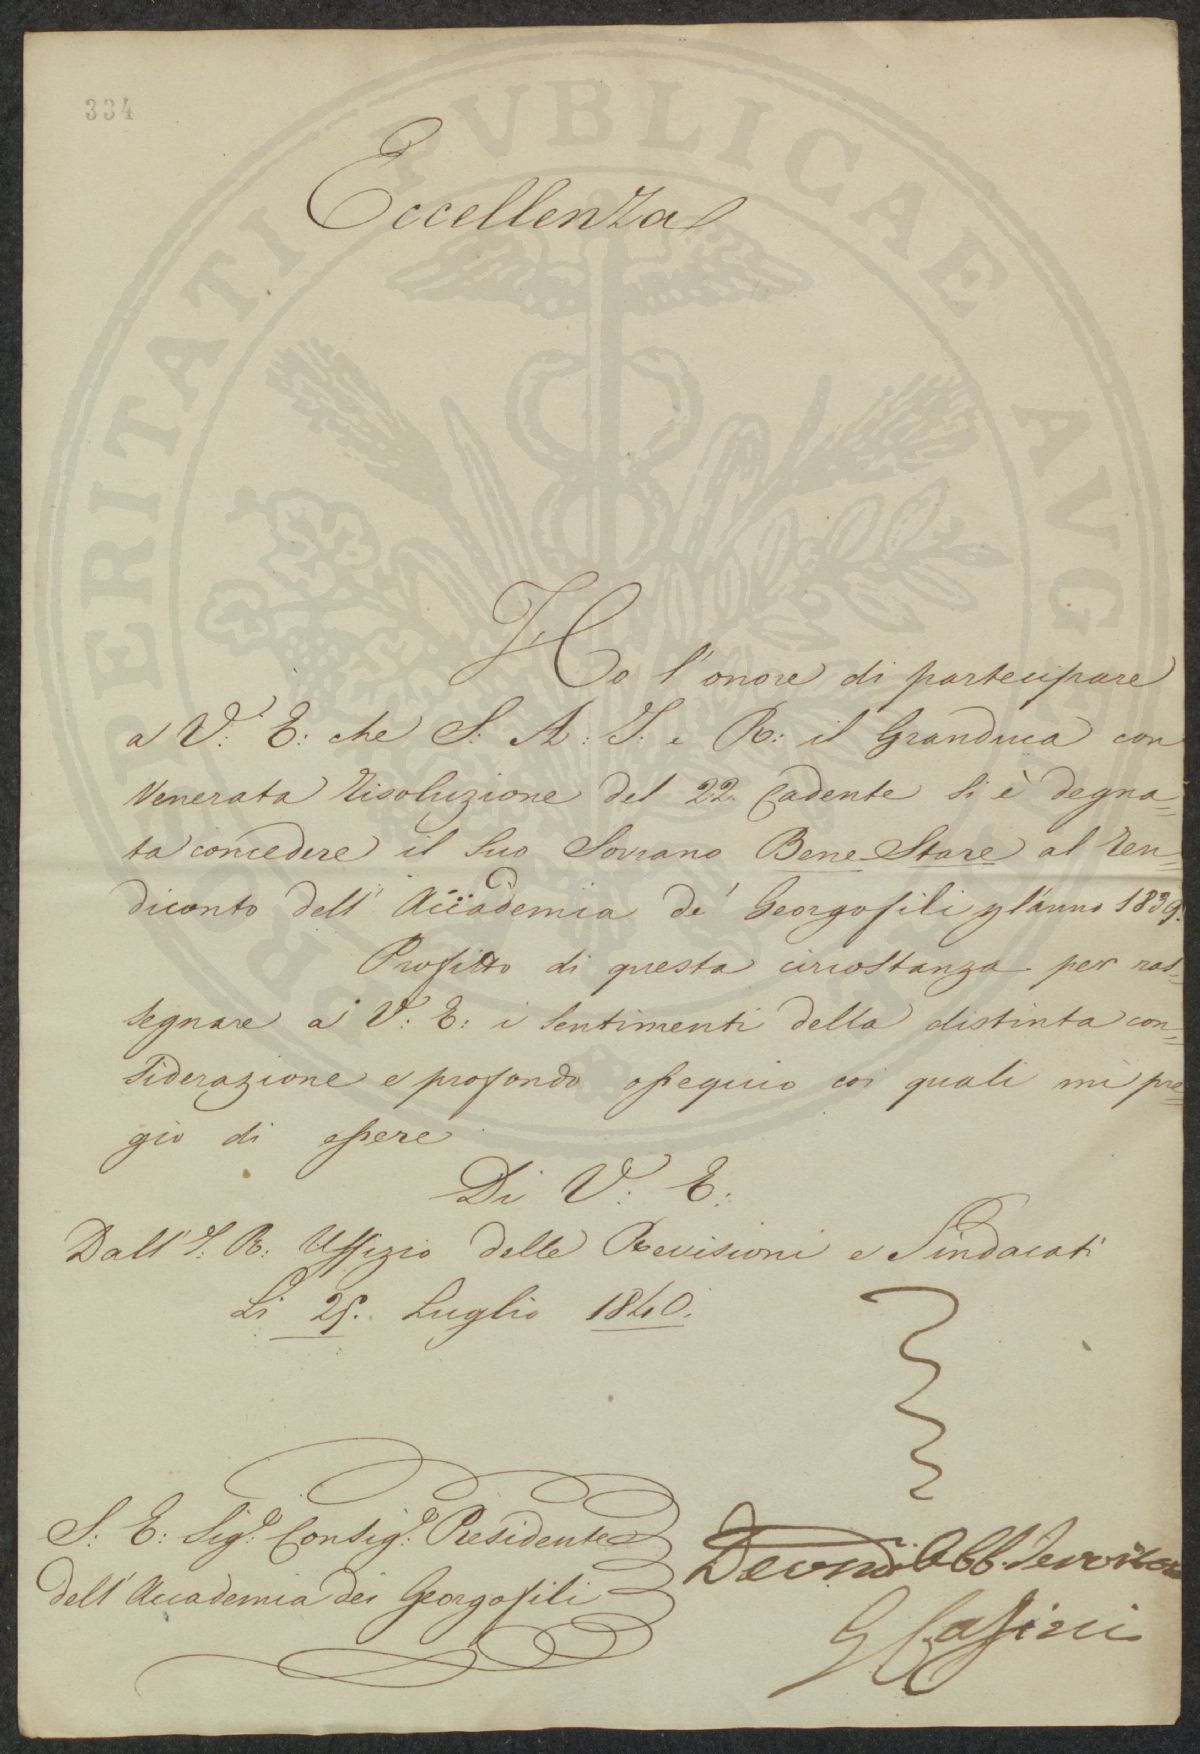 334
PROSPERITATI PVBLICAE AVGENDAE
Eccellenza
Ho l'onore di partecipare
a V: E: che S: A: I: e R: il Granduca con
Venerata Risoluzione del 22. Cadente si è degna=
ta concedere il Suo Sovrano Bene-Stare al Ren=
diconto dell'Accademia de' Georgofili pl'anno 1839.
Profitto di questa circostanza per ras=
segnare a V: E: i sentimenti della distinta con=
siderazione e profondo ossequio coi quali mi pre=
gio di essere
Di V: E:
Dall'I: R: Uffizio delle Revisioni e Sindacati
Li 25. Luglio 1840.
S: E: Sigr. Consigr. Presidente
dell'Accademia dei Georgofili
Devmo Obbl. Servitore
G Casini